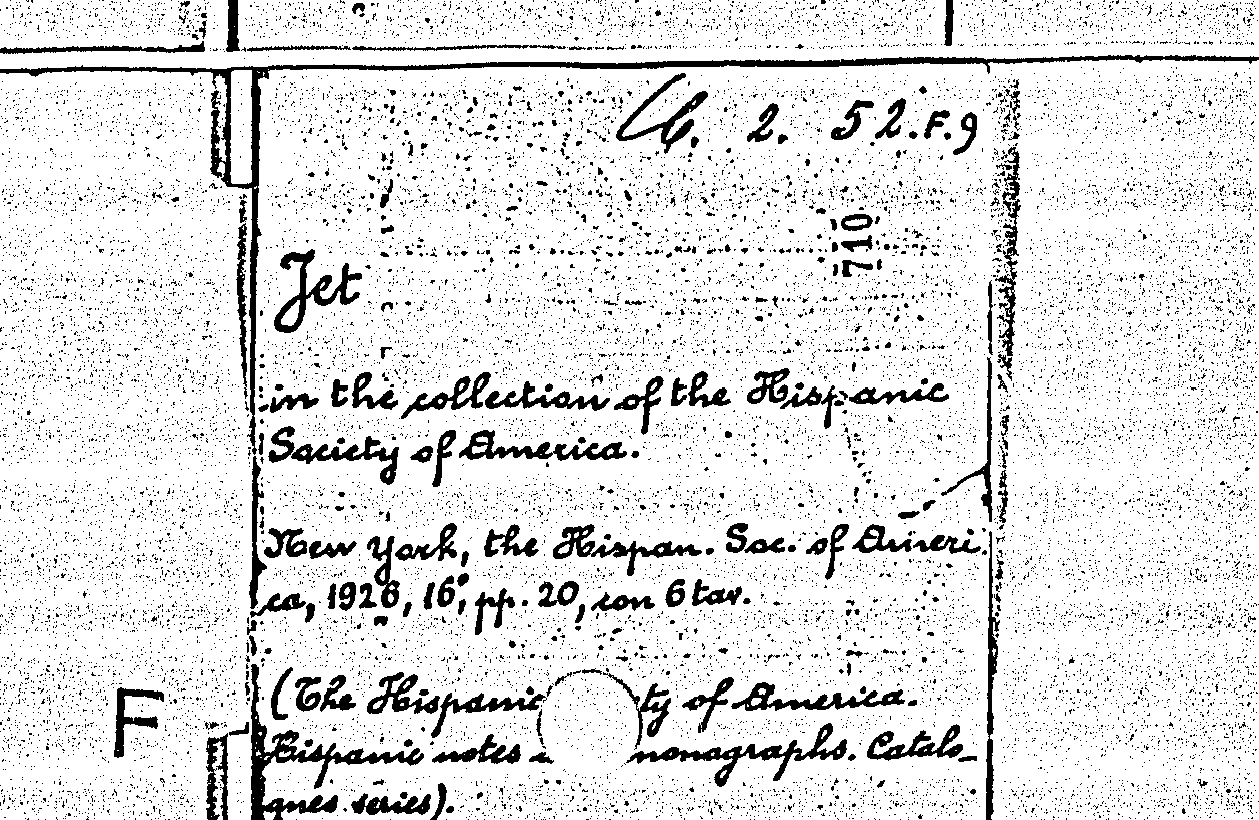 6. 2. 52.F.9
710
Jet
in the collection of the Hispanic
Society of America.
New York, the Hispan. Soc. of Ameri-
ca, 1926, 16°, pp. 20, con 6 tav.
(The Hispanic ty of America.
F
Hispanic notes monographs. Catalo-
gues series).